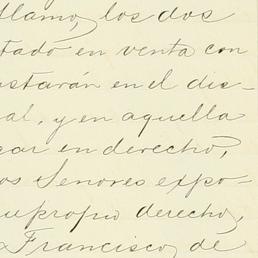 llamo, los dos
tado en venta con
starán en el dis-
al, y en aquella
car en derecho,
os Senores expo-
u propio derecho,
Francisco, de